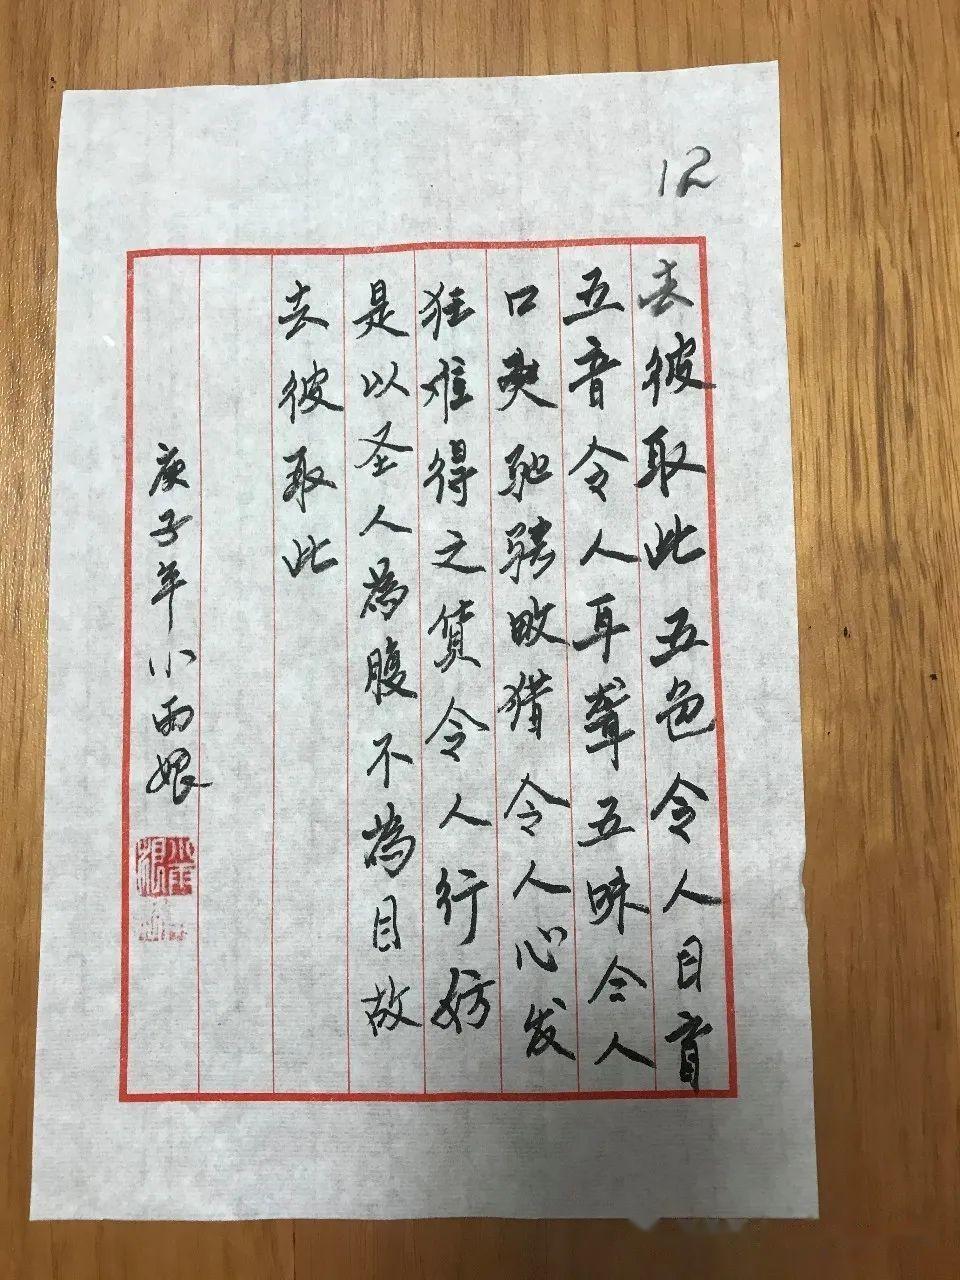 12
去彼取此 五色令人目盲
五音令人耳聋五味令人
口爽驰骋畋猎令人心发
狂难得之货令人行妨
是以圣人為腹不為目故
去彼取此
庚子年小雨娘